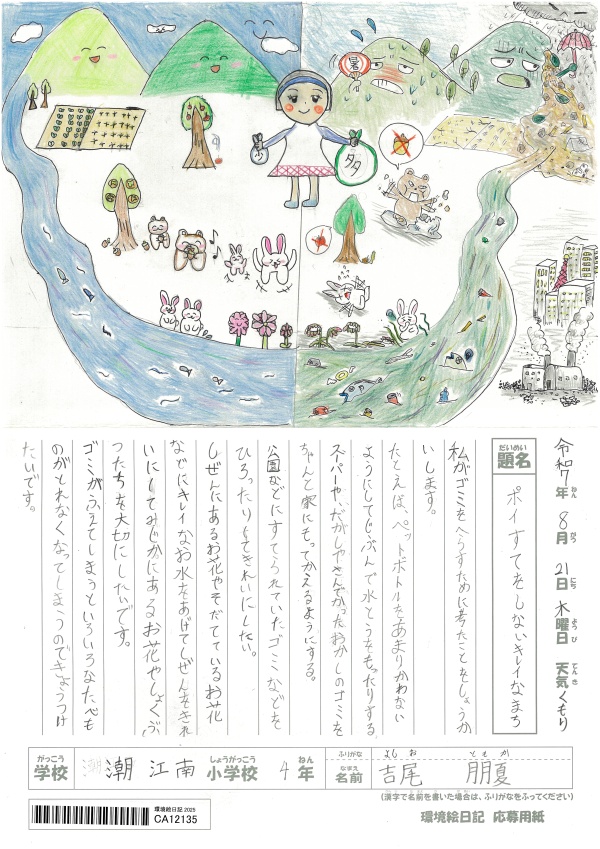 暑
少
多
令和7年 8月 21日 木曜日 天気 くもり
ねん がつ にち ようび てんき
だいめい
題名
ポイすてをしないキレイなまち
私がゴミをへらすために考たことをしょうか
いします。
たとえば、ペットボトルをあまりかわない
ようにしてじぶんで水とうをもったりする。
スーパーや、だがしやさんでかったおかしのゴミを
ちゃんと家にもってかえるようにする。
公園などにすてられていたゴミなどを
ひろったりしてきれいにしたい。
しぜんにあるお花やそだてているお花
などにキレイなお水をあげてしぜんをきれ
いにしてみじかにあるお花やしょくぶ
つたちを大切にしたいです。
ゴミがふえてしまうといろいろなたべも
のがとれなくなってしまうのできょうつけ
たいです。
がっこう
学校
潮江南
しょうがっこう
小学校
4年
ねん
ふりがな
よしお ともか
なまえ
名前
吉尾 朋夏
(漢字で名前を書いた場合は、ふりがなをふってください)
環境絵日記 2025
CA12135
環境絵日記 応募用紙